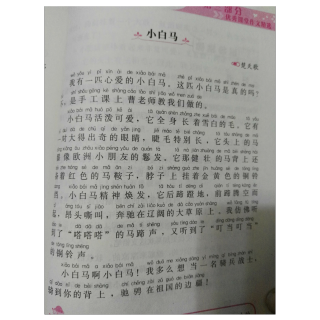 部分
小白马
我有一匹心爱的小白马，这匹小白马是真的吗？
是手工课上曹老师教我们做的。
小白马活泼可爱，它全身长着雪白的毛，它有
对大得出奇的眼睛，睫毛特别长，它头上的马
像欧洲小朋友的鬈发，它那健壮的马背上还
着红色的马鞍子，脖子上挂着金黄色的铜铃
小白马精神焕发，它后蹄蹬地，前蹄腾空高
起，昂头嘶叫，奔驰在辽阔的大草原上，我仿佛听
到了“嗒嗒嗒”的马蹄声，又听到了“叮当叮当”
的铜铃声。
小白马啊小白马！我多么想当一名骑兵战士，
骑到你的背上，驰骋在祖国的边疆！